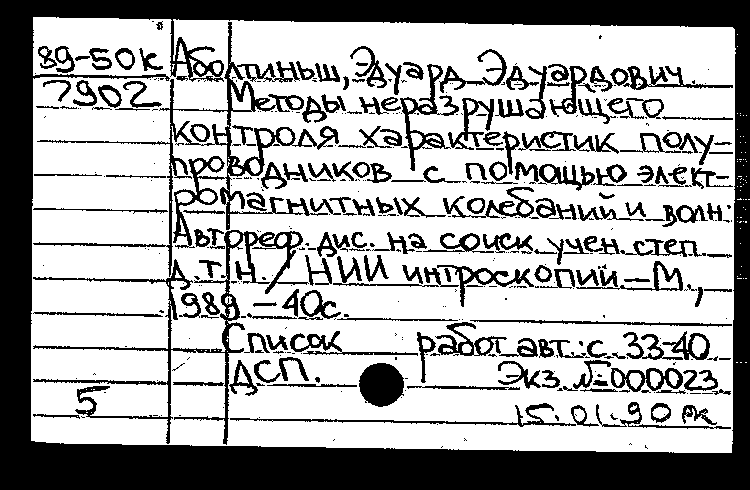 89-50к Аболтиньш, Эдуард Эдуардович.
7902 Методы неразрушающего
контроля характеристик полу-
проводников с помощью элект-
ромагнитных колебаний и волн:
Автореф. дис. на соиск. учен. степ.
д.т.н. / НИИ интроскопий. — М.,
1989. — 40с.
Список работ авт.: с. 33-40
ДСП. Экз. №000023.
5 15.01.90